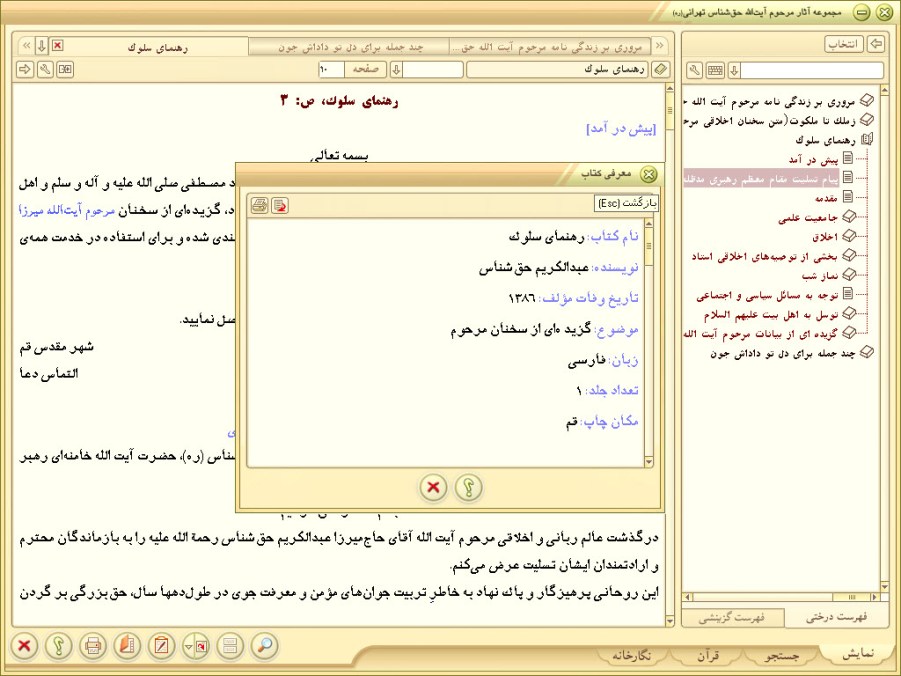 مجموعه آثار مرحوم آیت‌الله حق‌شناس تهرانی(ره)
انتخاب
مروری بر زندگی نامه مرحوم آیت الله ح
زملك تا ملكوت(متن سخنان اخلاقی مرح
رهنمای سلوك
پیش در آمد
پیام تسلیت مقام معظم رهبری مدظله
مقدمه
جامعیت علمی
اخلاق
بخشی از توصیه‌های اخلاقی استاد
نماز شب
توجه به مسائل سیاسی و اجتماعی
توسل به اهل بیت علیهم السلام
گزیده ای از بیانات مرحوم آیت الله
چند جمله برای دل تو داداش جون
فهرست درختی
فهرست گزینشی
مروری بر زندگی نامه مرحوم آیت الله حق...
چند جمله برای دل تو داداش جون
رهنمای سلوك
رهنمای سلوك
صفحه
۱۰
رهنمای سلوك، ص: ۳
[پیش در آمد]
بسمه تعالی
د مصطفی صلی الله علیه و آله و سلم و اهل
د، گزیده‌ای از سخنان مرحوم آیت‌الله میرزا
ندی شده و برای استفاده در خدمت همه‌ی
صل نمایید.
شهر مقدس قم
التماس دعا
ی
شناس (ره)، حضرت آیت الله خامنه‌ای رهبر
درگذشت عالم ربانی و اخلاقی مرحوم آیت الله آقای حاج‌میرزا عبدالکریم حق‌شناس رحمة الله علیه را به بازماندگان محترم
و ارادتمندان ایشان تسلیت عرض می‌کنم.
این روحانی پرهیزگار و پاك نهاد به خاطرِ تربیت جوان‌های مؤمن و معرفت جوی در طول‌دهها سال، حق‌بزرگی بر گردن
معرفی کتاب
بازگشت (Esc)
نام کتاب: رهنمای سلوك
نویسنده: عبدالکریم حق‌شناس
تاریخ وفات مؤلف: ۱۳۸۶
موضوع: گزیده ای از سخنان مرحوم
زبان: فارسی
تعداد جلد: ۱
مکان چاپ: قم
نمایش
جستجو
قرآن
نگارخانه